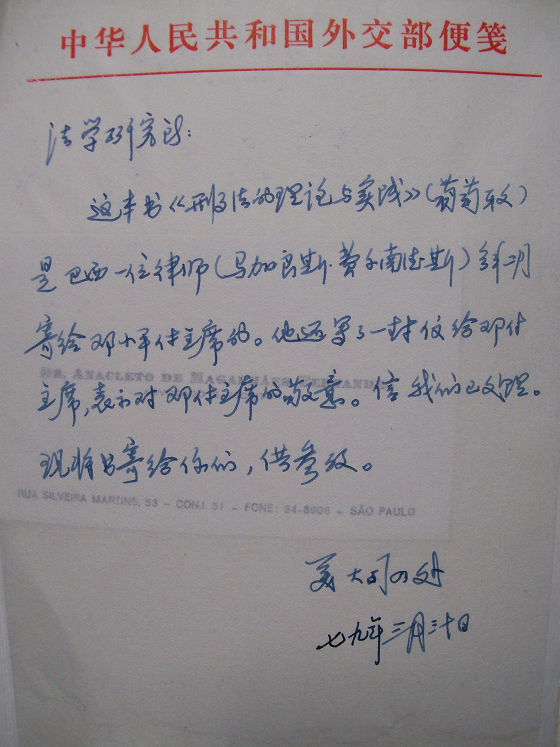 中华人民共和国外交部便笺
法学研究所：
这本书《刑法的理论与实践》（葡萄牙文）
是巴西一位律师（马加良斯·费尔南德斯）
寄给邓小平付主席的。他还写了一封信给邓付
DR. ANACLETO DE MAGALHÃES FERNANDES
主席，表示对邓付主席的敬意。信我们已处理。
现将书寄给你们，供参考。
RUA SILVEIRA MARTINS, 53 – CONJ. 51 – FONE: 34-5906 – SÃO PAULO
美大司四处
七九年三月三十日